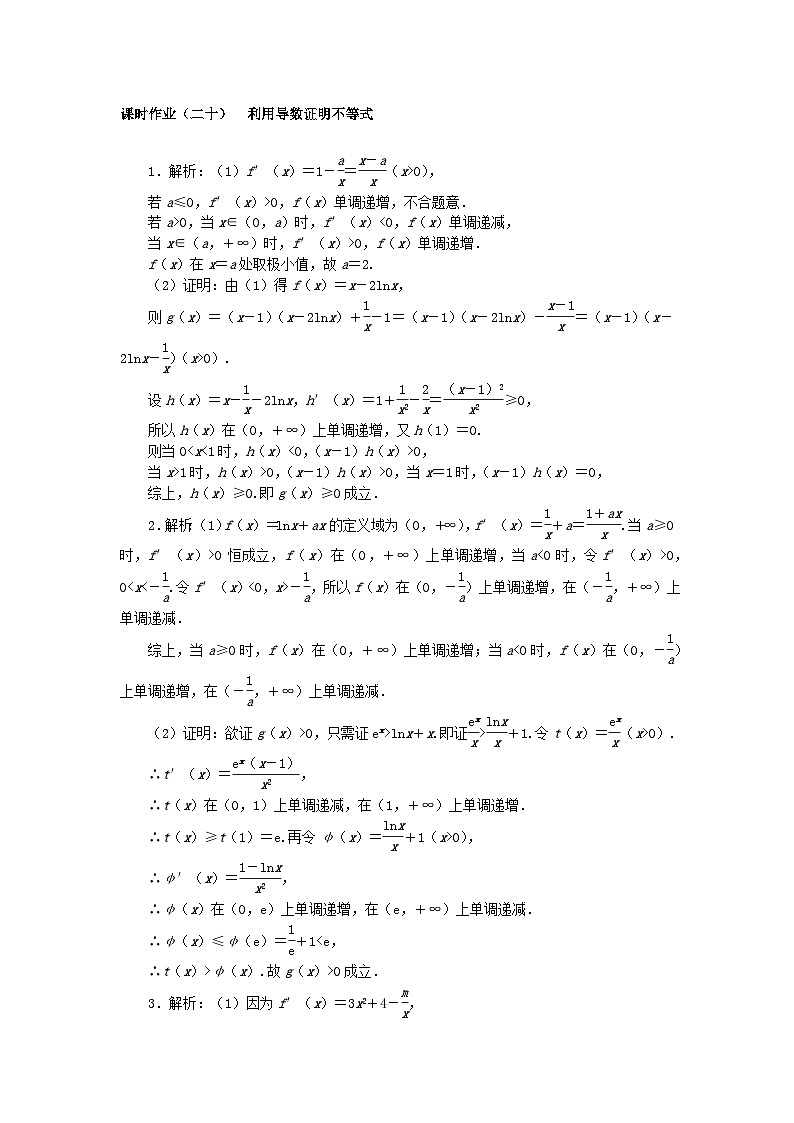 课时作业(二十)  利用导数证明不等式
1．解析：(1)f′(x)＝1－a/x＝(x－a)/x(x>0)，
若a≤0，f′(x)>0，f(x)单调递增，不合题意．
若a>0，当x∈(0，a)时，f′(x)<0，f(x)单调递减，
当x∈(a，＋∞)时，f′(x)>0，f(x)单调递增．
f(x)在x＝a处取极小值，故a＝2.
(2)证明：由(1)得f(x)＝x－2lnx，
则g(x)＝(x－1)(x－2lnx)＋1/x－1＝(x－1)(x－2lnx)－(x－1)/x＝(x－1)(x－
2lnx－1/x)(x>0)．
设h(x)＝x－1/x－2lnx，h′(x)＝1＋1/x²－2/x＝(x－1)²/x²≥0，
所以h(x)在(0，＋∞)上单调递增，又h(1)＝0.
则当0<x<1时，h(x)<0，(x－1)h(x)>0，
当x>1时，h(x)>0，(x－1)h(x)>0，当x＝1时，(x－1)h(x)＝0，
综上，h(x)≥0.即g(x)≥0成立．
2．解析：(1)f(x)＝lnx＋ax的定义域为(0，＋∞)，f′(x)＝1/x＋a＝(1＋ax)/x.当a≥0
时，f′(x)>0恒成立，f(x)在(0，＋∞)上单调递增，当a<0时，令f′(x)>0，
0<x<－1/a.令f′(x)<0，x>－1/a，所以f(x)在(0，－1/a)上单调递增，在(－1/a，＋∞)上
单调递减．
综上，当a≥0时，f(x)在(0，＋∞)上单调递增；当a<0时，f(x)在(0，－1/a)
上单调递增，在(－1/a，＋∞)上单调递减．
(2)证明：欲证g(x)>0，只需证eˣ>lnx＋x.即证eˣ/x>lnx/x＋1.令t(x)＝eˣ/x(x>0)．
∴t′(x)＝eˣ(x－1)/x²，
∴t(x)在(0，1)上单调递减，在(1，＋∞)上单调递增．
∴t(x)≥t(1)＝e.再令φ(x)＝lnx/x＋1(x>0)，
∴φ′(x)＝(1－lnx)/x²，
∴φ(x)在(0，e)上单调递增，在(e，＋∞)上单调递减．
∴φ(x)≤φ(e)＝1/e＋1<e，
∴t(x)>φ(x)．故g(x)>0成立．
3．解析：(1)因为f′(x)＝3x²＋4－m/x，